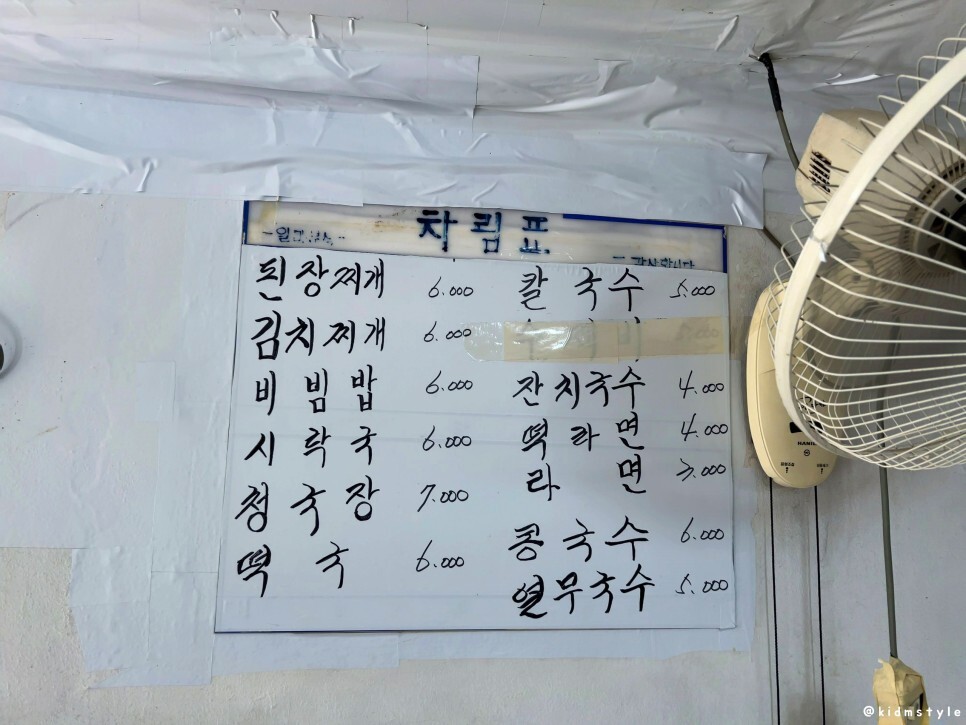 차림표
된장찌개 6.000
김치찌개 6.000
비빔밥 6.000
시락국 6.000
청국장 7.000
떡국 6.000
칼국수 5.000
잔치국수 4.000
떡라면 4.000
라면 3.000
콩국수 6.000
열무국수 5.000
@kidmstyle